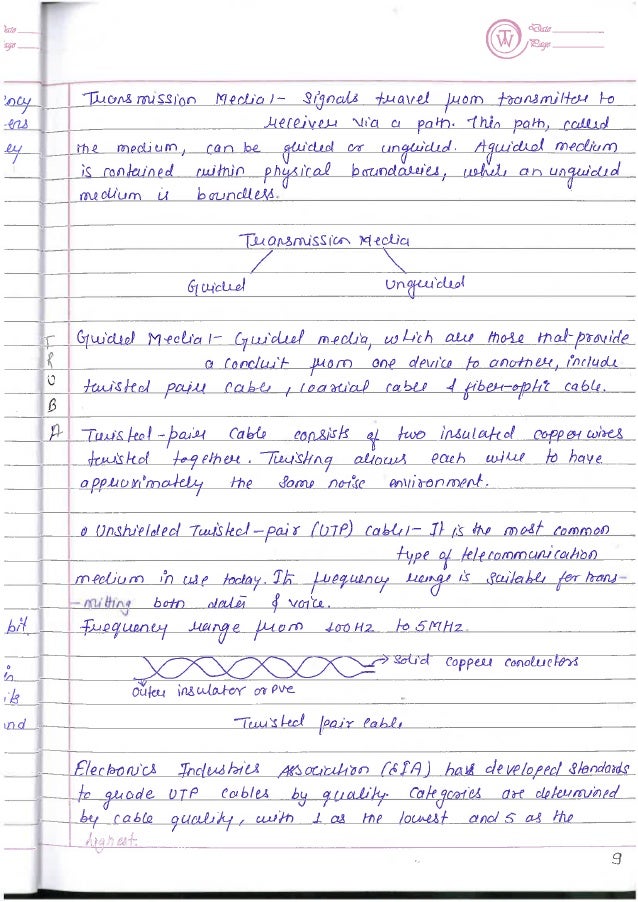 Date
Page
TW
Date
Page
ency
ers
ey
Transmission Media :- Signals travel from transmitter to
receiver via a path. This path, called
the medium, can be guided or unguided. A guided medium
is contained within physical boundaries, while an unguided
medium is boundless.
Transmission Media
Guided
Unguided
Guided Media :- Guided media, which are those that provide
a conduit from one device to another, include
twisted paire cable, coaxial cable & fiber-optic cable.
T
R
U
B
A
Twisted-pair cable consists of two insulated copper wires
twisted together. Twisting allows each wire to have
approximately the same noise environment.
o Unshielded Twisted-pair (UTP) cable :- It is the most common
type of telecommunication
medium in use today. Its frequency range is suitable for trans-
-mitting both data & voice.
bit
Frequency range from 100HZ to 5MHZ.
solid copper conductors
in
outer insulator or pvc
its
and
Twisted pair cable
Electronics Industries Association (EIA) has developed standards
to grade UTP cables by quality. Categories are determined
by cable quality, with 1 as the lowest and 5 as the
highest.
9